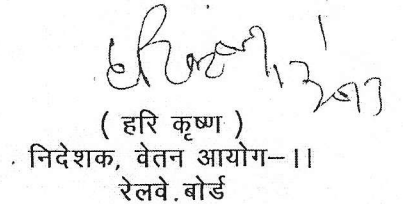 ( हरि कृष्ण )
निदेशक, वेतन आयोग–II
रेलवे बोर्ड